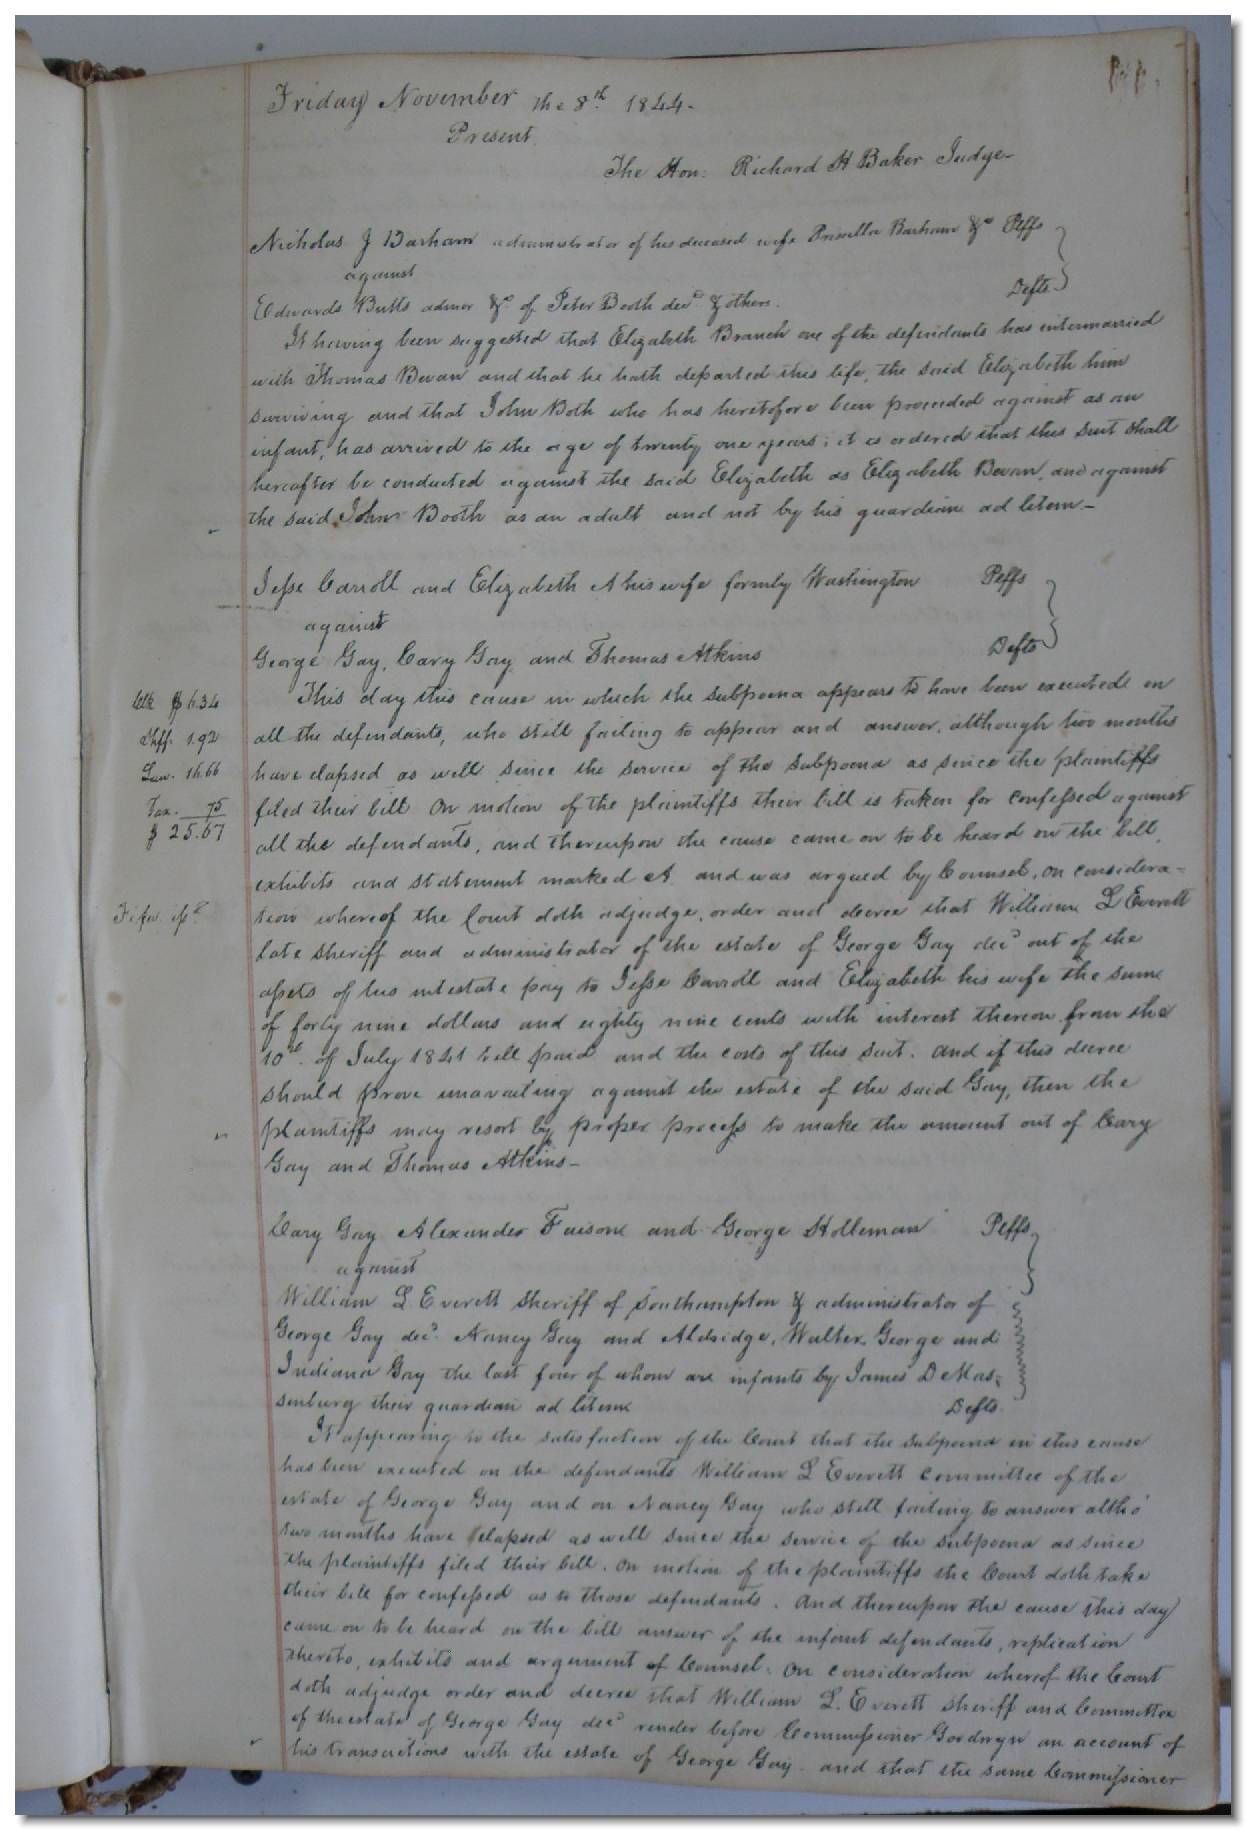 Friday November the 8th 1844-
Present
The Hon: Richard H Baker Judge-
Nicholas J Barham administrator of his deceased wife Priscilla Barham &c Plffs
against
Edwards Butts admor &c of Peter Booth decd & others. Defts
It having been suggested that Elizabeth Branch one of the defendants has intermarried
with Thomas Bevan and that he hath departed this life, the said Elizabeth him
surviving and that John Both who has heretofore been proceeded against as an
infant, has arrived to the age of twenty one years; it is ordered that this suit shall
hereafter be conducted against the said Elizabeth as Elizabeth Bevan, and against
the said John Booth as an adult and not by his guardian ad litem-
Jesse Carroll and Elizabeth A his wife formly Washington Plffs
against
George Gay, Cary Gay and Thomas Atkins Defts
This day this cause in which the subpoena appears to have been executed on
Clk $6.34
all the defendants, who still failing to appear and answer, although two months
Shff. 1.92
have elapsed as well since the service of the subpoena as since the plaintiffs
Law. 16.66
filed their bill On motion of the plaintiffs their bill is taken for confessed against
Tax. 75
all the defendants, and thereupon the cause came on to be heard on the bill,
$25.67
exhibits and statement marked A and was argued by Counsel, on considera-
tion whereof the Court doth adjudge, order and decree that William L Everett
Fi fa isd
late sheriff and administrator of the estate of George Gay decd out of the
assets of his intestate pay to Jesse Carroll and Elizabeth his wife the sum
of forty nine dollars and eighty nine cents with interest thereon from the
10th of July 1841 till paid and the costs of this suit. and if this decree
should prove unavailing against the estate of the said Gay, then the
plaintiffs may resort by proper process to make the amount out of Cary
Gay and Thomas Atkins-
Cary Gay Alexander Faison and George Holleman Plffs
against
William L Everett Sheriff of Southampton & administrator of
George Gay decd. Nancy Gay and Aldridge, Walter, George and
Indiana Gay the last four of whom are infants by James D Mas-
senburg their guardian ad litem Defts
It appearing to the satisfaction of the Court that the subpoena in this cause
has been executed on the defendants William L Everett Committee of the
estate of George Gay and on Nancy Gay who still failing to answer altho'
two months have elapsed as well since the service of the subpoena as since
the plaintiffs filed their bill. On motion of the plaintiffs the Court doth take
their bill for confessed as to those defendants. And thereupon the cause this day
came on to be heard on the bill answer of the infant defendants, replication
thereto, exhibits and argument of Counsel. On consideration whereof the Court
doth adjudge order and decree that William L. Everett Sheriff and Committee
of the estate of George Gay decd render before Commissioner Gordwyn an account of
his transactions with the estate of George Gay. and that the same Commissioner